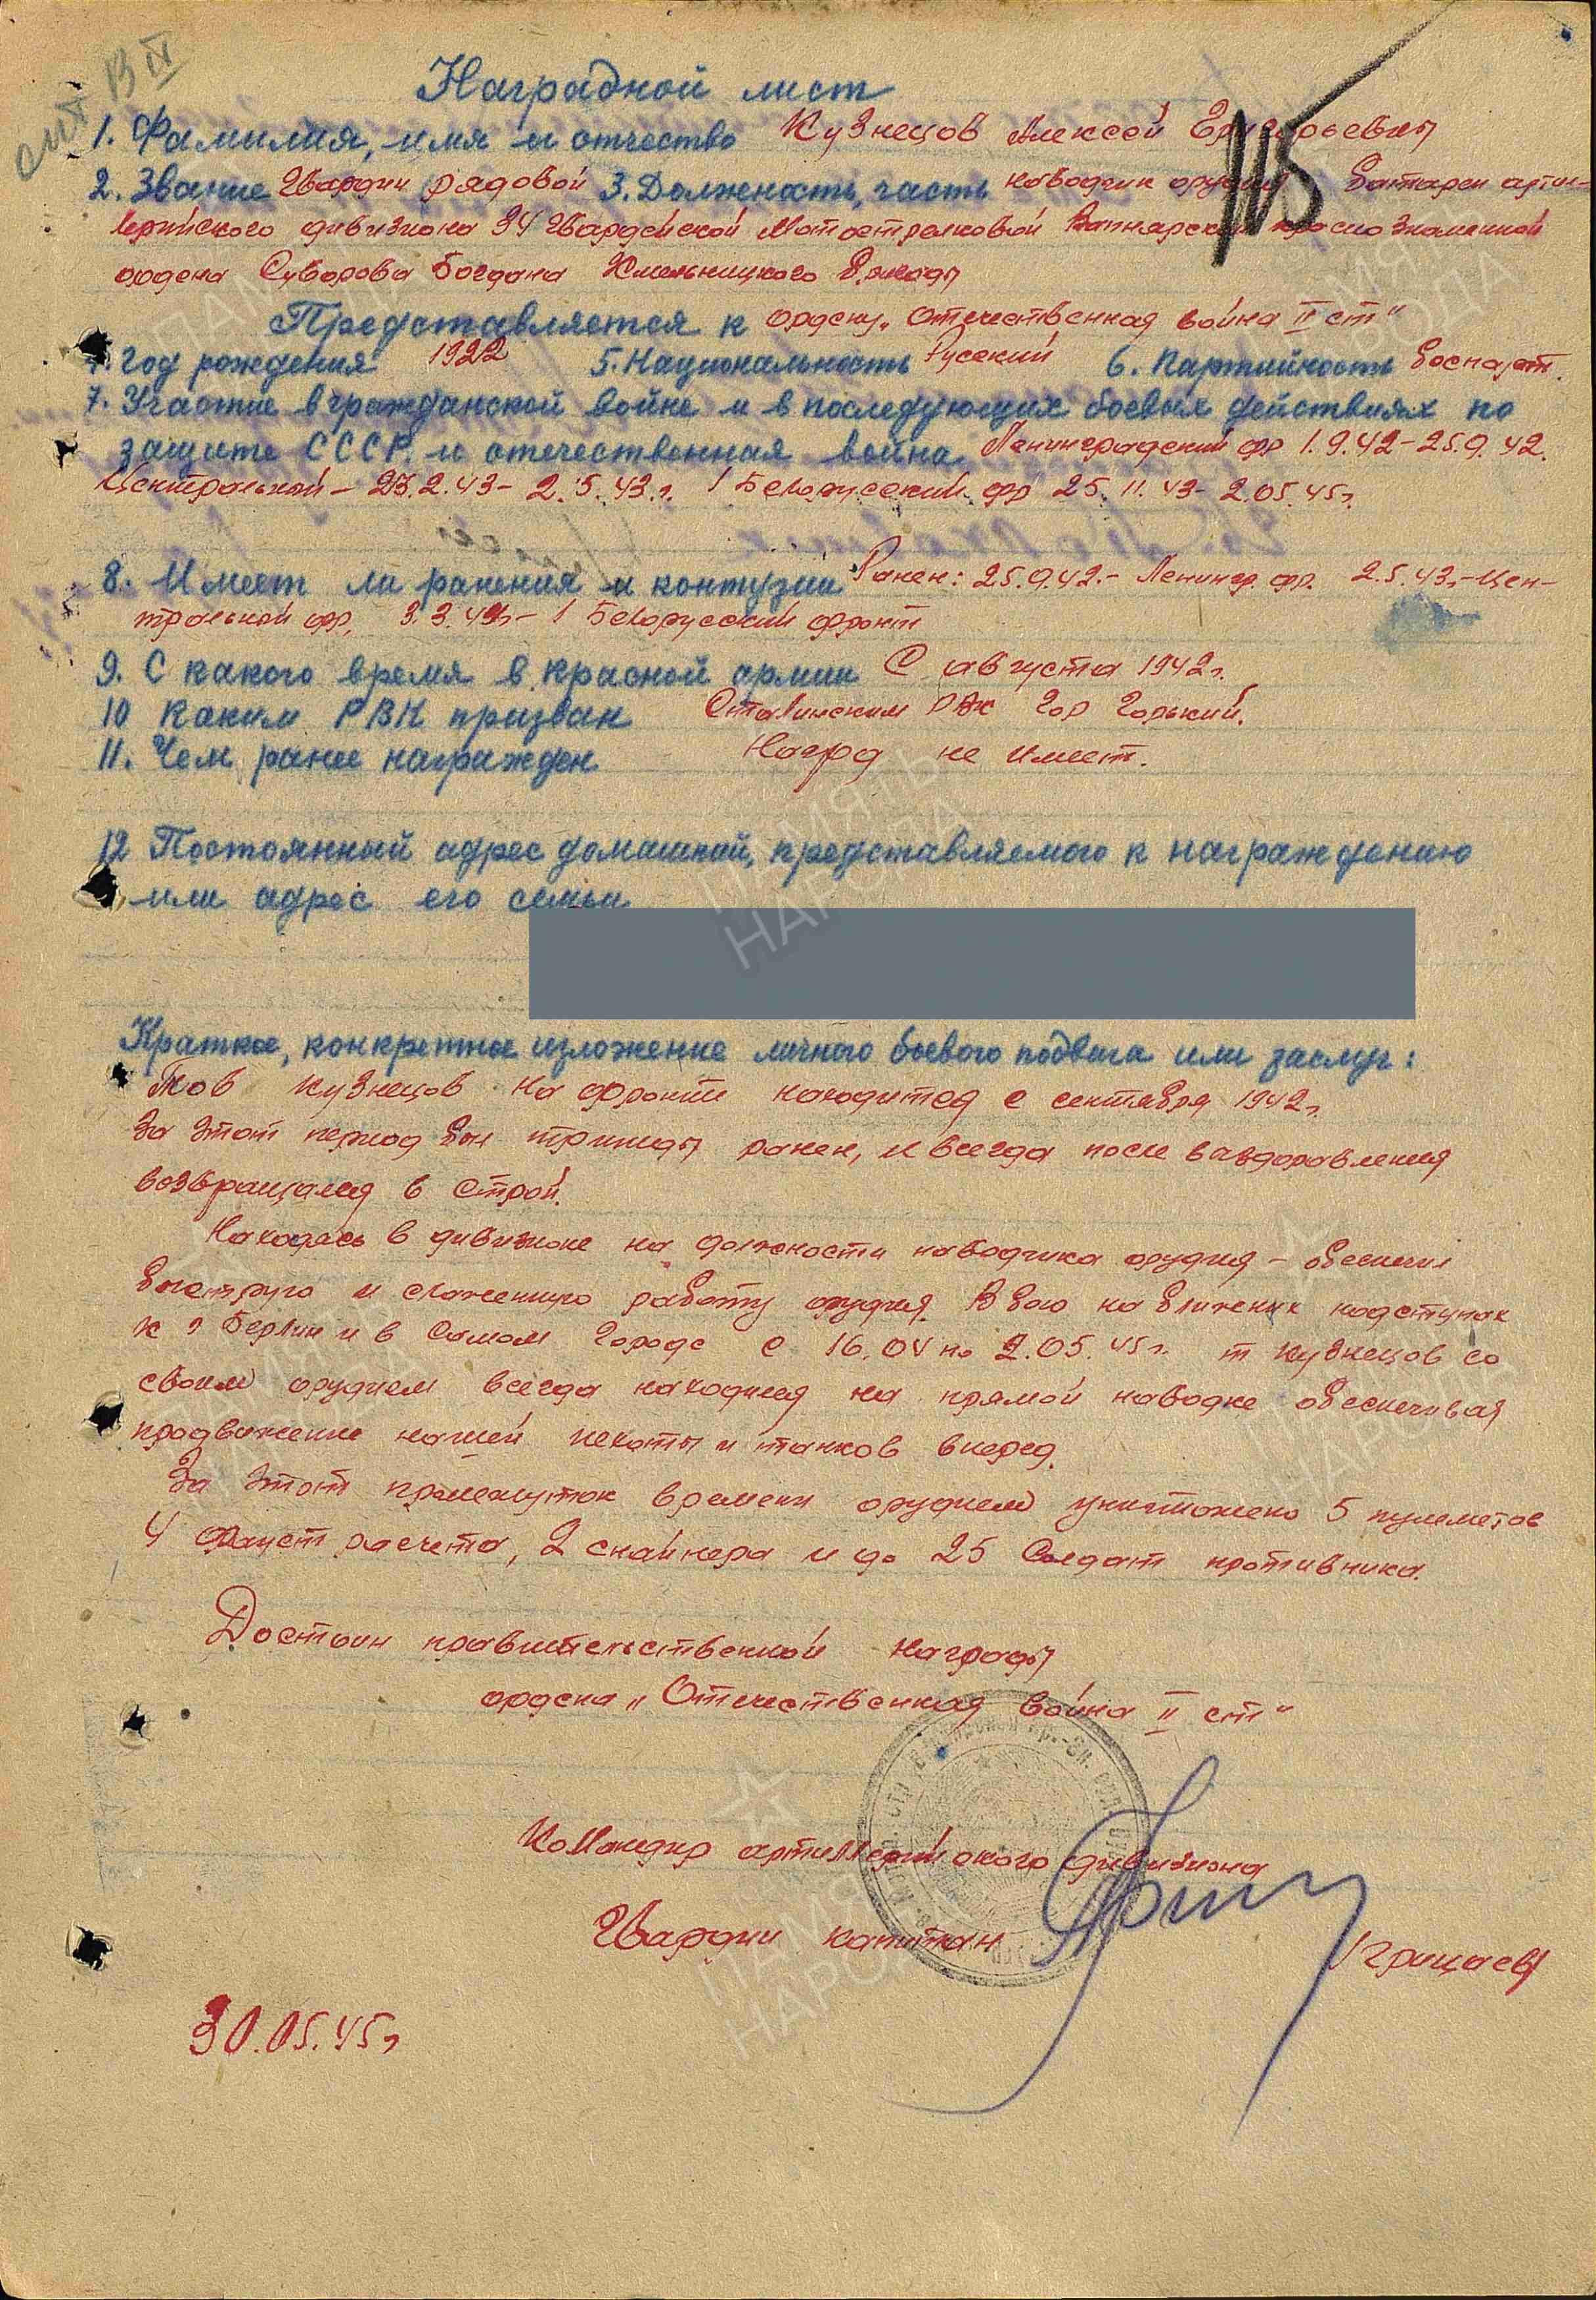 Наградной лист
1. Фамилия, имя и отчество Кузнецов Алексей
2. Звание Гвардии рядовой 3. Должность, часть наводчик орудия батареи артил-
лерийского дивизиона 34 Гвардейской Мотострелковой Вапнярской Краснознаменной
ордена Суворова Богдана Хмельницкого бригады
Представляется к ордену „Отечественная война II ст"
4. Год рождения 1922 5. Национальность Русский 6. Партийность беспарт.
7. Участие в гражданской войне и в последующих боевых действиях по
защите СССР и отечественная война Ленинградский фр 1.9.42-25.9.42.
Центральный - 23.2.43- 2.5.43.г. 1 Белорусский фр 25.11.43- 2.05.45г.
8. Имеет ли ранения и контузии Ранен: 25.9.42.- Ленингр. фр. 2.5.43.-Цен-
тральный фр. 3.3.44г- 1 Белорусский фронт
9. С какого время в красной армии С августа 1942г.
10 Каким РВК призван Сталинским РВК Гор Горький.
11. Чем ранее награжден Нагрд не имеет.
12 Постоянный адрес домашний, представляемого к награждению
или адрес его семьи
Краткое, конкретное изложение личного боевого подвига или заслуг:
Тов Кузнецов на фронте находится с сентября 1942г.
За этот период был трижды ранен, и всегда после выздоравления
возвращался в строй.
Находясь в дивизионе на должности наводчика орудия - обеспечил
быструю и слаженную работу орудия. В бою на ближних подступах
к г Берлин и в самом городе с 16.04 по 2.05.45г. т Кузнецов со
своим орудием всегда находился на прямой наводке обеспечивая
продвижение нашей пехоты и танков вперед.
За этот промежуток времени орудием уничтожено 5 пулеметов
4 Фауст расчета, 2 снайпера и до 25 солдат противника.
Достоин правительственной награды
ордена „Отечественная война II ст"
Командир артиллерийского дивизиона
Гвардии капитан /Грицаев/
30.05.45г
115
ПАМЯТЬ
НАРОДА